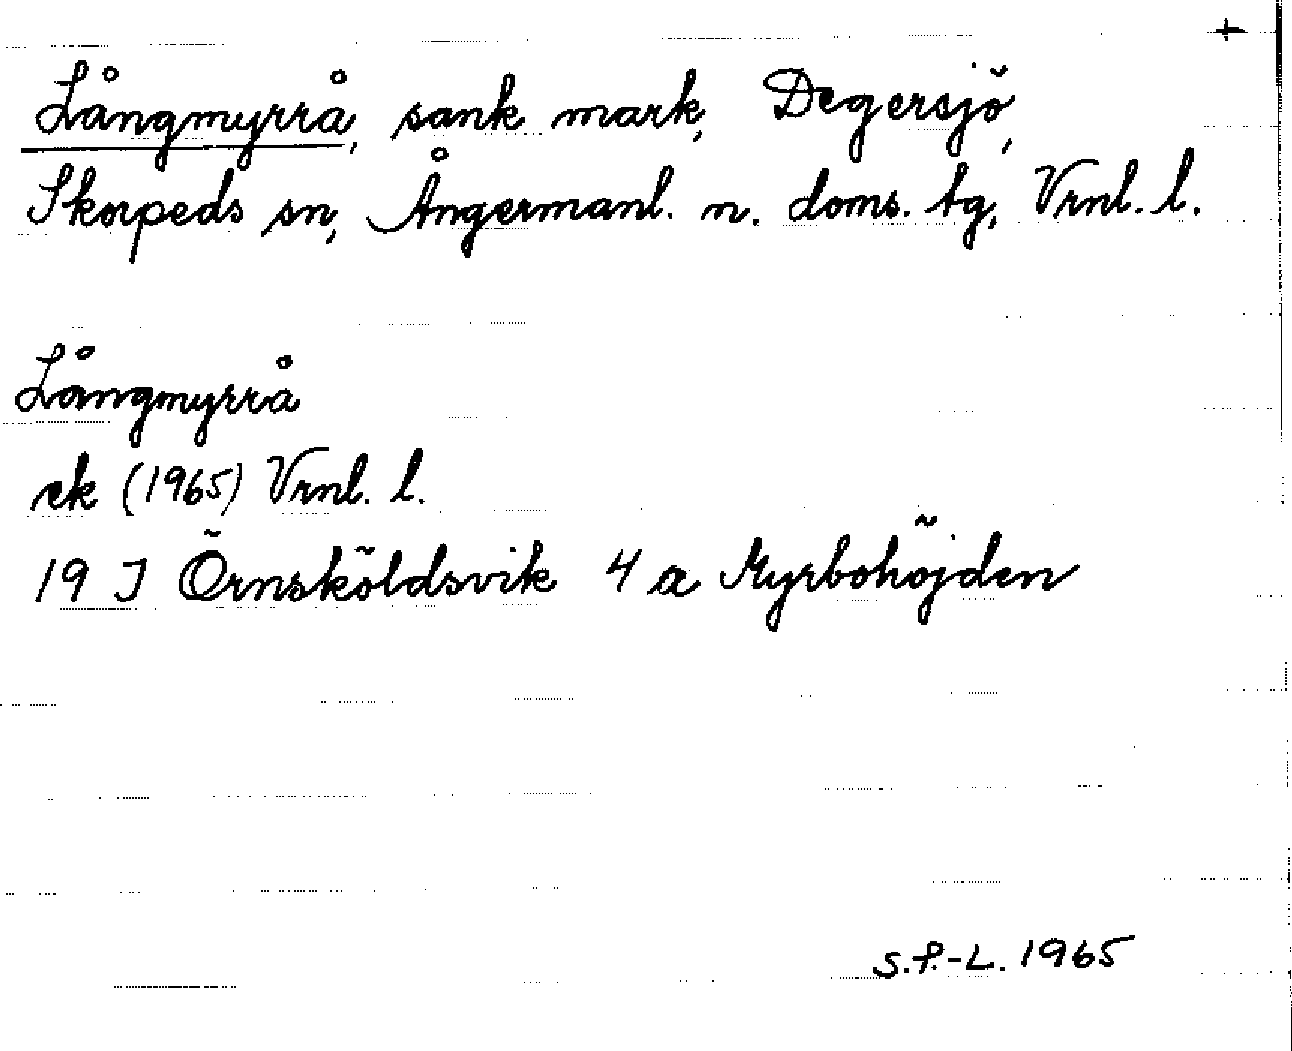 +
Långmyrrå, sank mark, Degersjö,
Skorpeds sn, Ångermanl. n. doms. tg, Vrnl. l.
Långmyrrå
ek (1965) Vrnl. l.
19 J Örnsköldsvik 4 a Myrbohöjden
S.P.-L. 1965